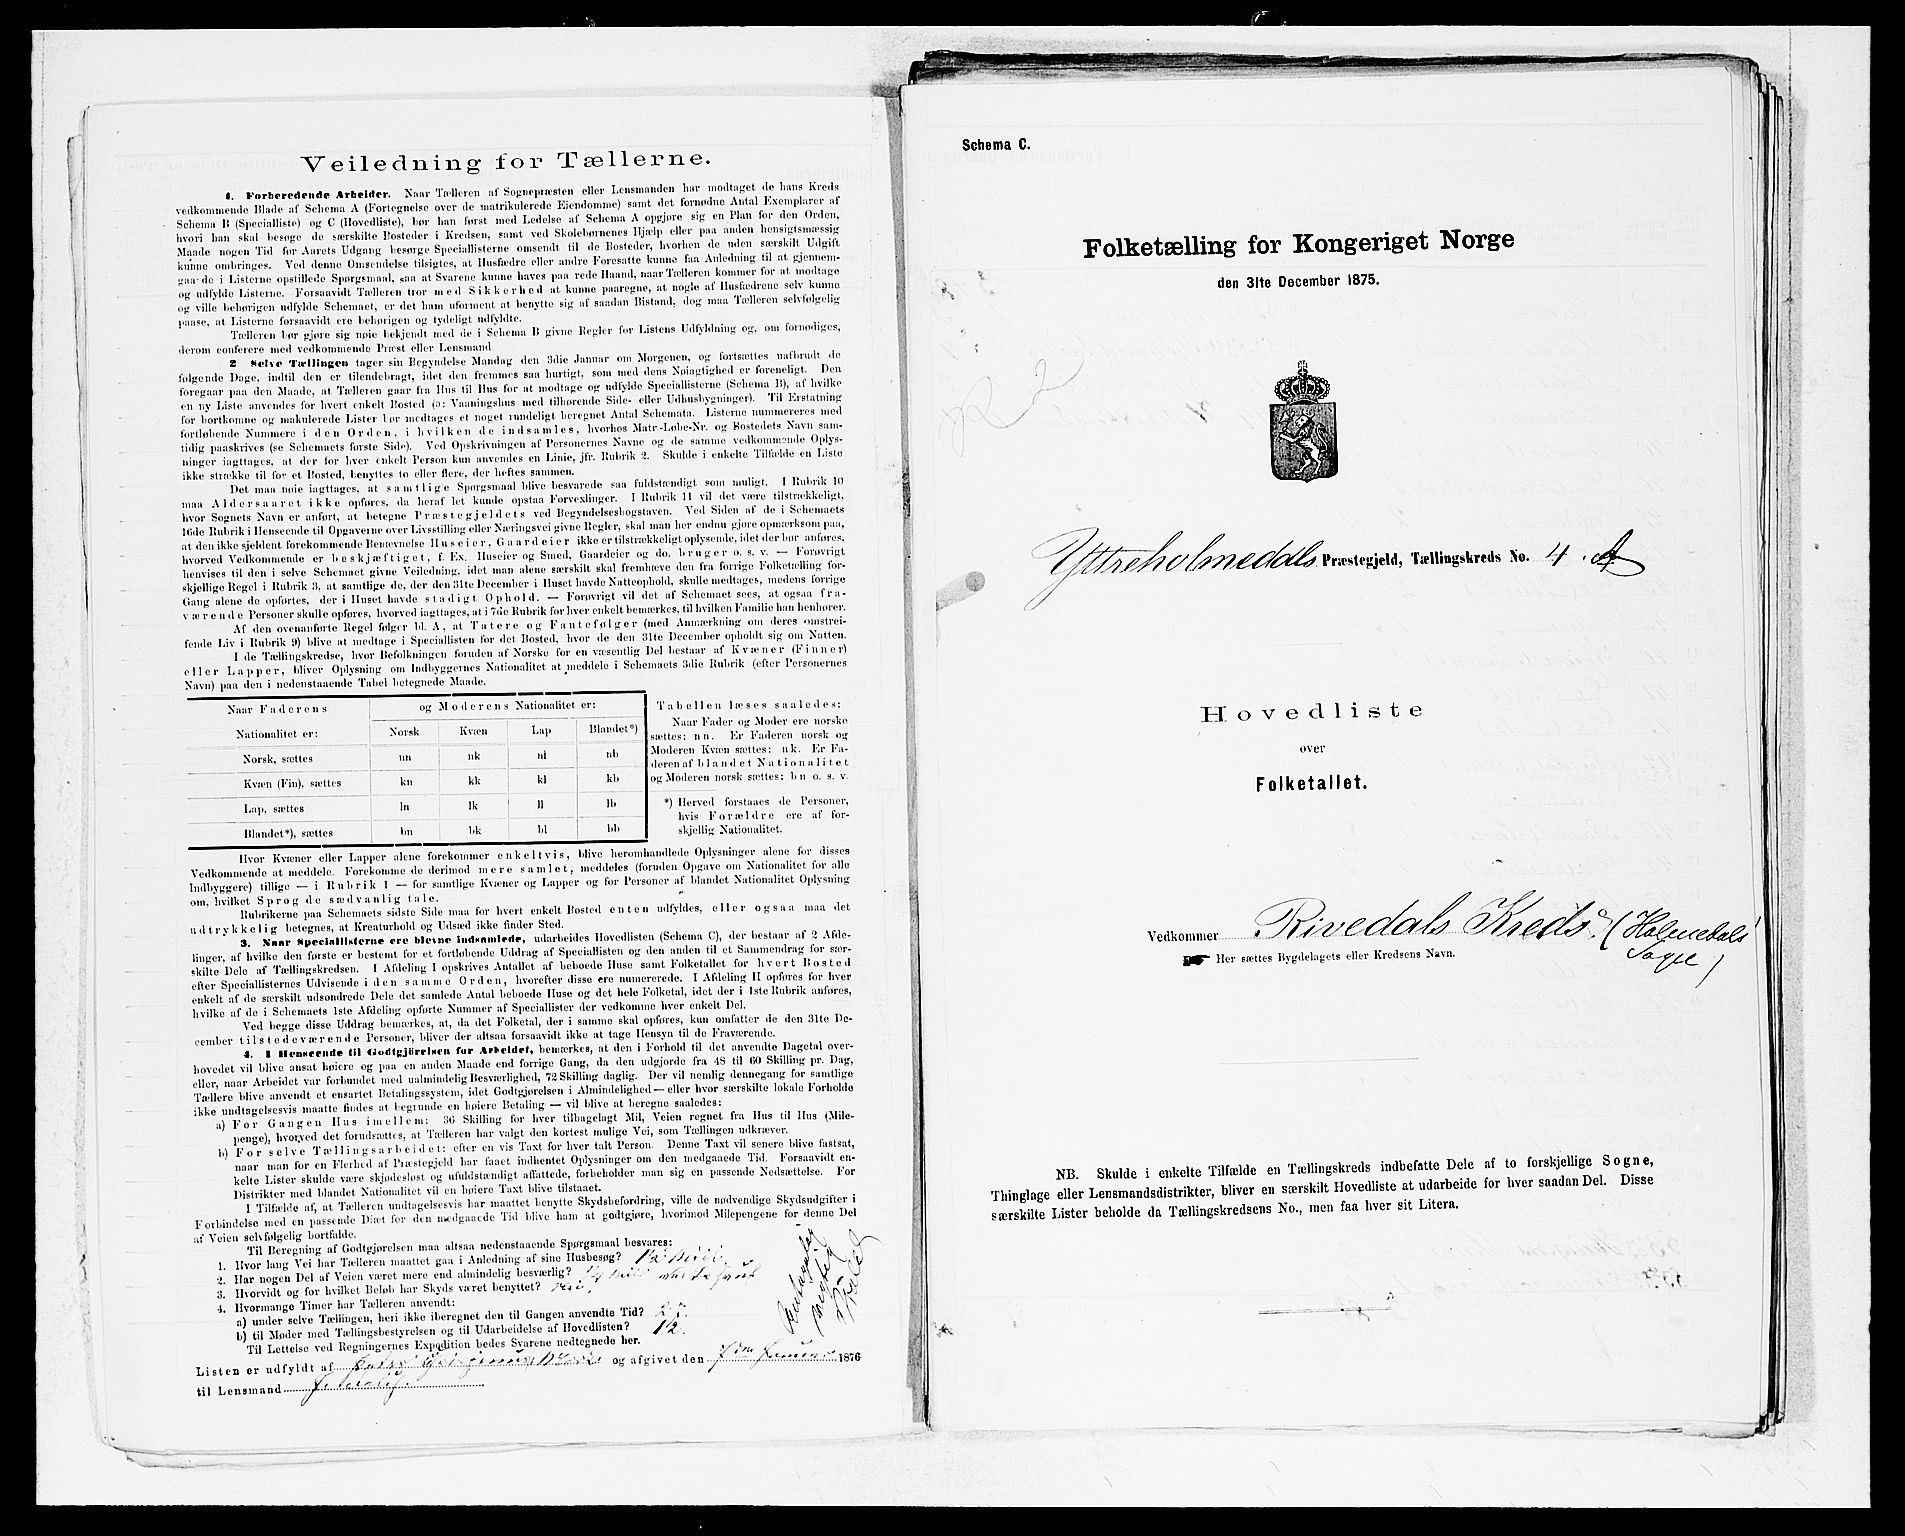 Veiledning for Tællerne.
1. Forberedende Arbeider. Naar Tælleren af Sognepræsten eller Lensmanden har modtaget de hans Kreds
vedkommende Blade af Schema A (Fortegnelse over de matrikulerede Eiendomme) samt det fornødne Antal Exemplarer af
Schema B (Specialliste) og C (Hovedliste), bør han først med Ledelse af Schema A opgjøre sig en Plan for den Orden,
hvori han skal besøge de særskilte Bosteder i Kredsen, samt ved Skolebørnenes Hjælp eller paa anden hensigtsmæssig
Maade nogen Tid før Aarets Udgang besørge Speciallisterne omsendt til de Bosteder, hvorhen de uden særskilt Udgift
kunne ombringes. Ved denne Omsendelse tilsigtes, at Husfædre eller andre Foresatte kunne faa Anledning til at gjennem-
gaa de i Listerne opstillede Spørgsmaal, saa at Svarene kunne haves paa rede Haand, naar Tælleren kommer for at modtage
og udfylde Listerne. Forsaavidt Tælleren tror med Sikkerhed at kunne paaregne, at nogle af Husfædrene selv kunne
og ville behørigen udfylde Schemaet, er det ham uforment at benytte sig af saadan Bistand, dog maa Tælleren selvfølgelig
paase, at Listerne forsaavidt ere behørigen og tydeligt udfyldte.
Tælleren bør gjøre sig nøie bekjendt med de i Schema B givne Regler for Listens Udfyldning og, om fornødiges,
derom conferere med vedkommende Præst eller Lensmand.
2 Selve Tællingen tager sin Begyndelse Mandag den 3die Januar om Morgenen, og fortsættes uafbrudt de
følgende Dage, indtil den er tilendebragt, idet den fremmes saa hurtigt, som med dens Nøiagtighed er foreneligt. Den
foregaar paa den Maade, at Tælleren gaar fra Hus til Hus for at modtage og udfylde Speciallisterne (Schema B), af hvilke
en ny Liste anvendes for hvert enkelt Bosted (ɔ: Vaaningshus med tilhørende Side- eller Udhusbygninger). Til Erstatning
for bortkomne og makulerede Lister bør medtages et noget rundeligt beregnet Antal Schemata. Listerne nummereres med
fortløbende Nummere i den Orden, i hvilken de indsamles, hvorhos Matr.-Løbe-Nr. og Bostedets Navn sam-
tidig paaskrives (se Schemaets første Side). Ved Opskrivningen af Personernes Navne og de samme vedkommende Oplys-
ninger iagttages, at der for hver enkelt Person kun anvendes en Linie, jfr. Rubrik 2. Skulde i enkelte Tilfælde en Liste
ikke strække til for et Bosted, benyttes to eller flere, der heftes sammen.
Det maa nøie iagttages, at samtlige Spørgsmaal blive besvarede saa fuldstændigt som muligt. I Rubrik 10
maa Aldersaaret ikke opføres, da heraf let kunde opstaa Forvexlinger. I Rubrik 11 vil det være tilstrækkeligt,
hvor Sognets Navn er anført, at betegne Præstegjeldets ved Begyndelsesbogstaven. Ved Siden af de i Schemaets
16de Rubrik i Henseende til Opgaverne over Livsstilling eller Næringsvei givne Regler, skal man her endnu gjøre opmærksom paa,
at den ikke sjeldent forekommende Benævnelse Huseier, Gaardeier ikke er tilstrækkeligt oplysende, idet der bør anføres,
hvorved Vedkommende er beskjæftiget, f. Ex. Huseier og Smed, Gaardeier og do. bruger o. s. v. — Forøvrigt
henvises til den i selve Schemaet givne Veiledning, idet man alene særskilt skal fremhæve den fra forrige Folketælling for-
skjellige Regel i Rubrik 3, at samtlige de, der den 31te December i Huset havde Natteophold, skulle medtages, medens forrige
Gang alene de opførtes, der i Huset havde stadigt Ophold. — Forøvrigt vil det af Schemaet sees, at ogsaa fra-
værende Personer skulle opføres, hvorved iagttages, at i 7de Rubrik for hver enkelt bemærkes, til hvilken Familie han henhører.
Af den ovenanførte Regel følger bl. A. at Tatere og Fantefølger (med Anmærkning om deres omstrei-
fende Liv i Rubrik 9) blive at medtage i Speciallisten for det Bosted, hvor de den 31te December opholdt sig om Natten.
I de Tællingskredse, hvor Befolkningen foruden af Norske for en væsentlig Del bestaar af Kvæner (Finner)
eller Lapper, bliver Oplysning om Indbyggernes Nationalitet at meddele i Schemaets 3die Rubrik (efter Personernes
Navn) paa den i nedenstaaende Tabel betegnede Maade.
Naar Faderens Nationalitet er: og Moderens Nationalitet er:
Norsk Kvæn Lap Blandet*)
Norsk, sættes nn nk nl nb
Kvæn (Fin), sættes kn kk kl kb
Lap, sættes ln lk ll lb
Blandet*), sættes bn bk bl bb
Tabellen læses saaledes:
Naar Fader og Moder ere norske
sættes: nn. Er Faderen norsk og
Moderen Kvæn sættes: nk. Er Fa-
deren af blandet Nationalitet
og Moderen norsk sættes: bn o. s. v.
*) Herved forstaaes de Personer,
hvis Forældre ere af for-
skjellig Nationalitet.
Hvor Kvæner eller Lapper alene forekommer enkeltvis, blive heromhandlede Oplysninger alene for disses
Vedkommende at meddele. Forekomme de derimod mere samlet, meddeles (foruden Opgave om Nationalitet for alle
Indbyggere) tillige — i Rubrik 1 — for samtlige Kvæner og Lapper og for Personer af blandet Nationalitet Oplysning
om, hvilket Sprog de sædvanlig tale.
Rubrikerne paa Schemaets sidste Side maa for hvert enkelt Bosted enten udfyldes, eller ogsaa maa det
udtrykkelig betegnes, at Kreaturhold og Udsæd ikke finder Sted.
3. Naar Speciallisterne ere blevne indsamlede, udarbeides Hovedlisten (Schema C), der bestaar af 2 Afde-
linger, af hvilke den første er bestemt for et fortløbende Uddrag af Speciallisten og den anden til et Sammendrag for sær-
skilte Dele af Tællingskredsen. I Afdeling I opskrives Antallet af beboede Huse samt Folketallet for hvert Bosted
efter Speciallisternes Udvisende i den samme Orden, hvorefter disse ere numererede. I Afdeling II opføres for hver
enkelt af de særskilt udsondrede Dele det samlede Antal beboede Huse og det hele Folketal, idet der i 1ste Rubrik anføres,
hvilke af de i Schemaets 1ste Afdeling opførte Nummer af Speciallister der vedkomme hver enkelt Del.
Ved begge disse Uddrag bemærkes, at, da det Folketal, der i samme skal opføres, kun omfatter de den 31te De-
cember tilstedeværende Personer, bliver der altsaa forsaavidt ikke at tage Hensyn til de Fraværende.
4. I Henseende til Godtgjörelsen for Arbeidet, bemærkes, at den i Forhold til det anvendte Dagetal over-
hovedet vil blive ansat høiere og paa en anden Maade end forrige Gang, da den udgjorde fra 48 til 60 Skilling pr. Dag,
eller, naar Arbeidet var forbundet med ualmindelig Besværlighed, 72 Skilling daglig. Der vil nemlig dennegang for samtlige
Tællere blive anvendt et ensartet Betalingssystem, idet Godtgjørelsen i Almindelighed — eller hvor særskilte lokale Forholde
ikke undtagelsesvis maatte findes at begrunde en høiere Betaling — vil blive at beregne saaledes:
a) For Gangen Hus imellem: 36 Skilling for hver tilbagelagt Mil, Veien regnet fra Hus til Hus (Mile-
penge), hvorved det forudsættes, at Tælleren har valgt den kortest mulige Vei, som Tællingen udkræver.
b) For selve Tællingsarbeidet: efter en vis Taxt for hver talt Person. Denne Taxt vil senere blive fastsat,
naar man for en Flerhed af Præstegjeld har faaet indhentet Oplysninger om den medgaaede Tid. Forsaavidt en-
kelte Lister skulde være skjødesløst og ufuldstændigt affattede, forbeholder man sig en passende Nedsættelse. For
Distrikter med blandet Nationalitet vil en høiere Taxt blive tilstaaet.
I Tilfælde af, at Tælleren undtagelsesvis har maattet benytte Skydsbefordring, ville de nødvendige Skydsudgifter i
Forbindelse med en passende Diæt for den medgaaede Tid blive ham at godtgjøre, hvorimod Milepengene for denne Del
af Veien selvfølgelig bortfalde.
Til Beregning af Godtgjørelsen maa altsaa nedenstaaende Spørgsmaal besvares:
1. Hvor lang Vei har Tælleren maattet gaa i Anledning af sine Husbesøg? 1½
2. Har nogen Del af Veien været mere end almindelig besværlig?
3. Hvorvidt og for hvilket Beløb har Skyds været benyttet?
4. Hvormange Timer har Tælleren anvendt:
a) under selve Tællingen, heri ikke iberegnet den til Gangen anvendte Tid?
b) til Møder med Tællingsbestyrelsen og til Udarbeidelse af Hovedlisten? 12.
Til Lettelse ved Regningernes Expedition bedes Svarene nedtegnede her.
Listen er udfyldt af og afgivet den 1876
til Lensmand
Schema C.
Folketælling for Kongeriget Norge
den 31te December 1875.
Yttreholmedals Præstegjeld, Tællingskreds No. 4. A
Hovedliste
over
Folketallet.
Vedkommer Rivedals Kreds (Holmedals
Sogn)
Her sættes Bygdelagets eller Kredsens Navn.
NB. Skulde i enkelte Tilfælde en Tællingskreds indbefatte Dele af to forskjellige Sogne,
Thinglage eller Lensmandsdistrikter, bliver en særskilt Hovedliste at udarbeide for hver saadan Del. Disse
særskilte Lister beholde da Tællingskredsens No., men faa hver sit Litera.